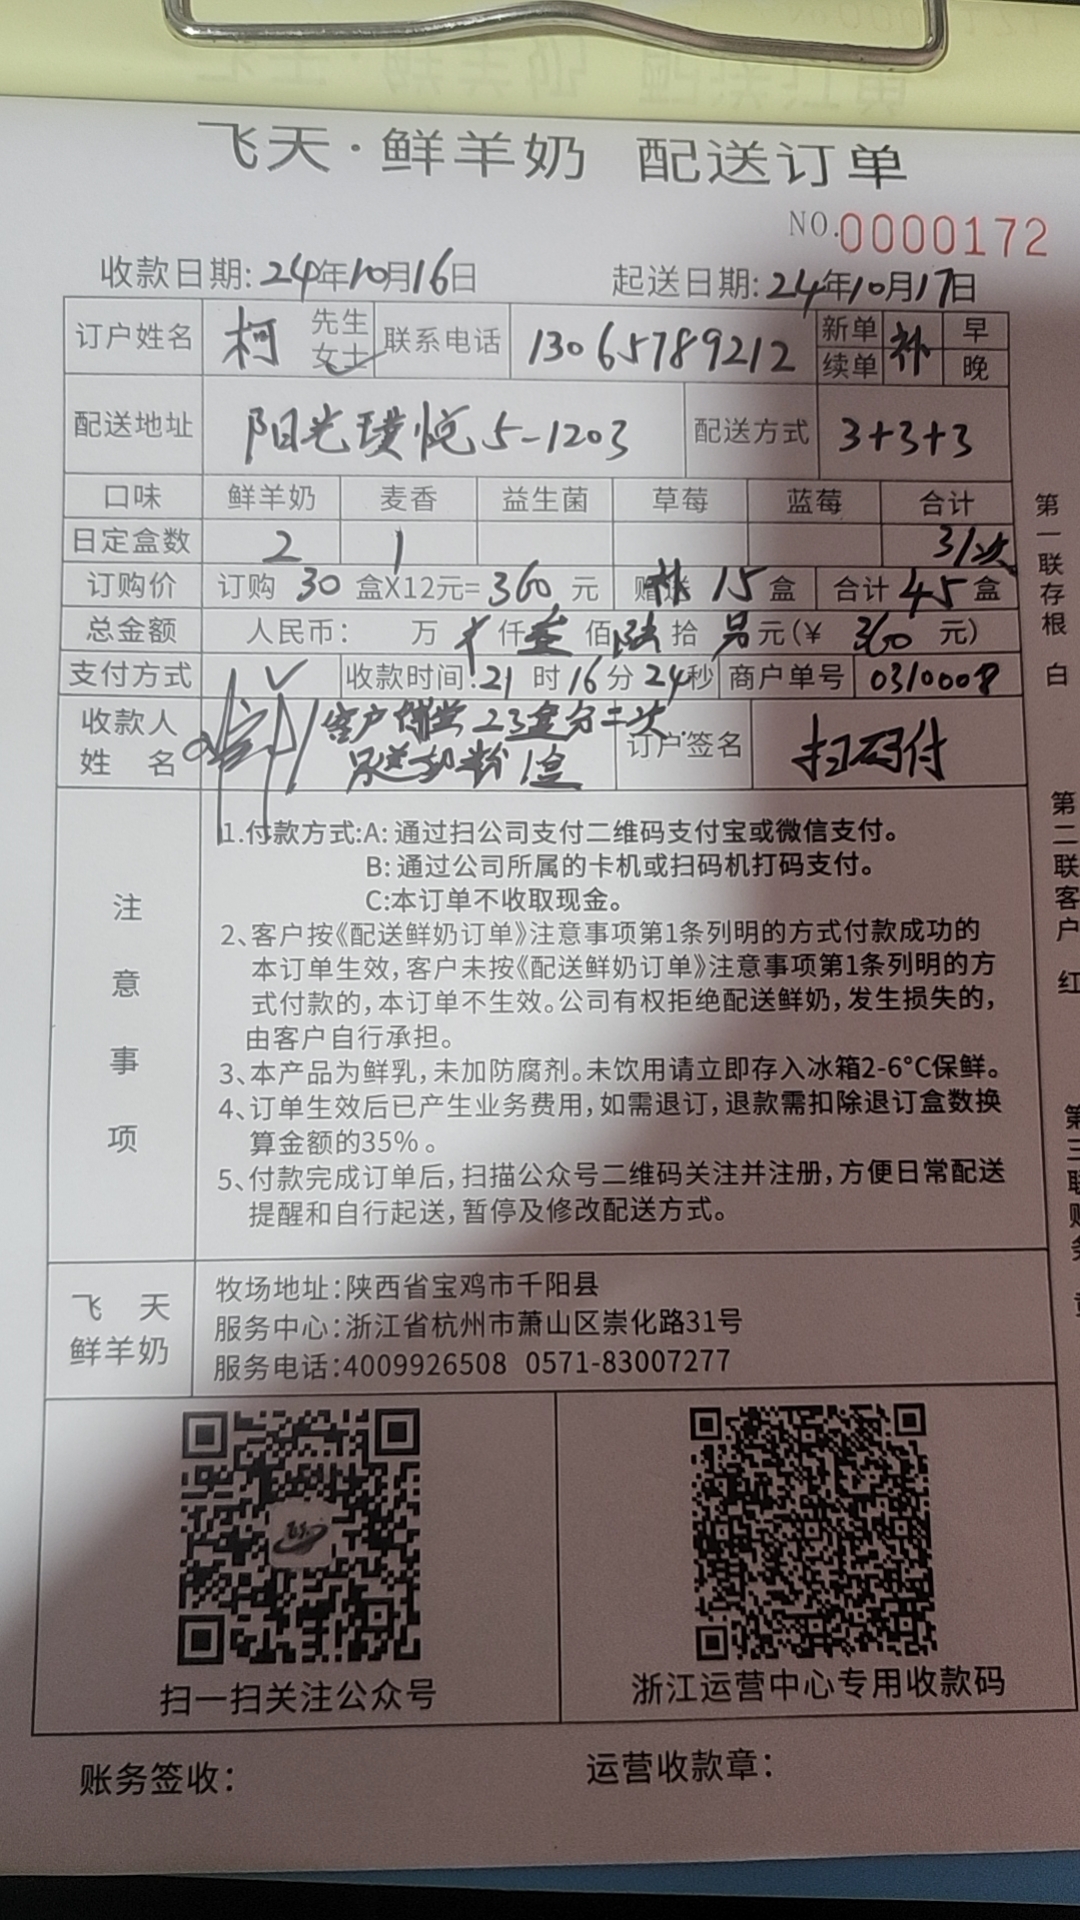 飞天·鲜羊奶 配送订单
NO.0000172
收款日期:24年10月16日 起送日期:24年10月17日
订户姓名 柯 先生 女士 联系电话 13065789212 新单 续单 补 早 晚
配送地址 阳光璞悦5-1203 配送方式 3+3+3
口味 鲜羊奶 麦香 益生菌 草莓 蓝莓 合计
日定盒数 2 1 3/次
订购价 订购 30 盒X12元=360 元 赠送 补 15 盒 合计 45 盒
总金额 人民币: 万 仟 佰 陆 拾 另 元(¥ 360 元)
支付方式 收款时间:21 时 16 分 24秒 商户单号 0310008
收款人 姓 名 客户 23盒分二次 另送奶粉1盒 订户签名 扫码付
注意事项
1.付款方式:A:通过扫公司支付二维码支付宝或微信支付。
B:通过公司所属的卡机或扫码机打码支付。
C:本订单不收取现金。
2、客户按《配送鲜奶订单》注意事项第1条列明的方式付款成功的
本订单生效,客户未按《配送鲜奶订单》注意事项第1条列明的方
式付款的,本订单不生效。公司有权拒绝配送鲜奶,发生损失的,
由客户自行承担。
3、本产品为鲜乳,未加防腐剂。未饮用请立即存入冰箱2-6°C保鲜。
4、订单生效后已产生业务费用,如需退订,退款需扣除退订盒数换
算金额的35%。
5、付款完成订单后,扫描公众号二维码关注并注册,方便日常配送
提醒和自行起送,暂停及修改配送方式。
飞天
鲜羊奶
牧场地址:陕西省宝鸡市千阳县
服务中心:浙江省杭州市萧山区崇化路31号
服务电话:4009926508 0571-83007277
扫一扫关注公众号
浙江运营中心专用收款码
账务签收:
运营收款章:
第一联存根 白
第二联客户 红
第三联财务